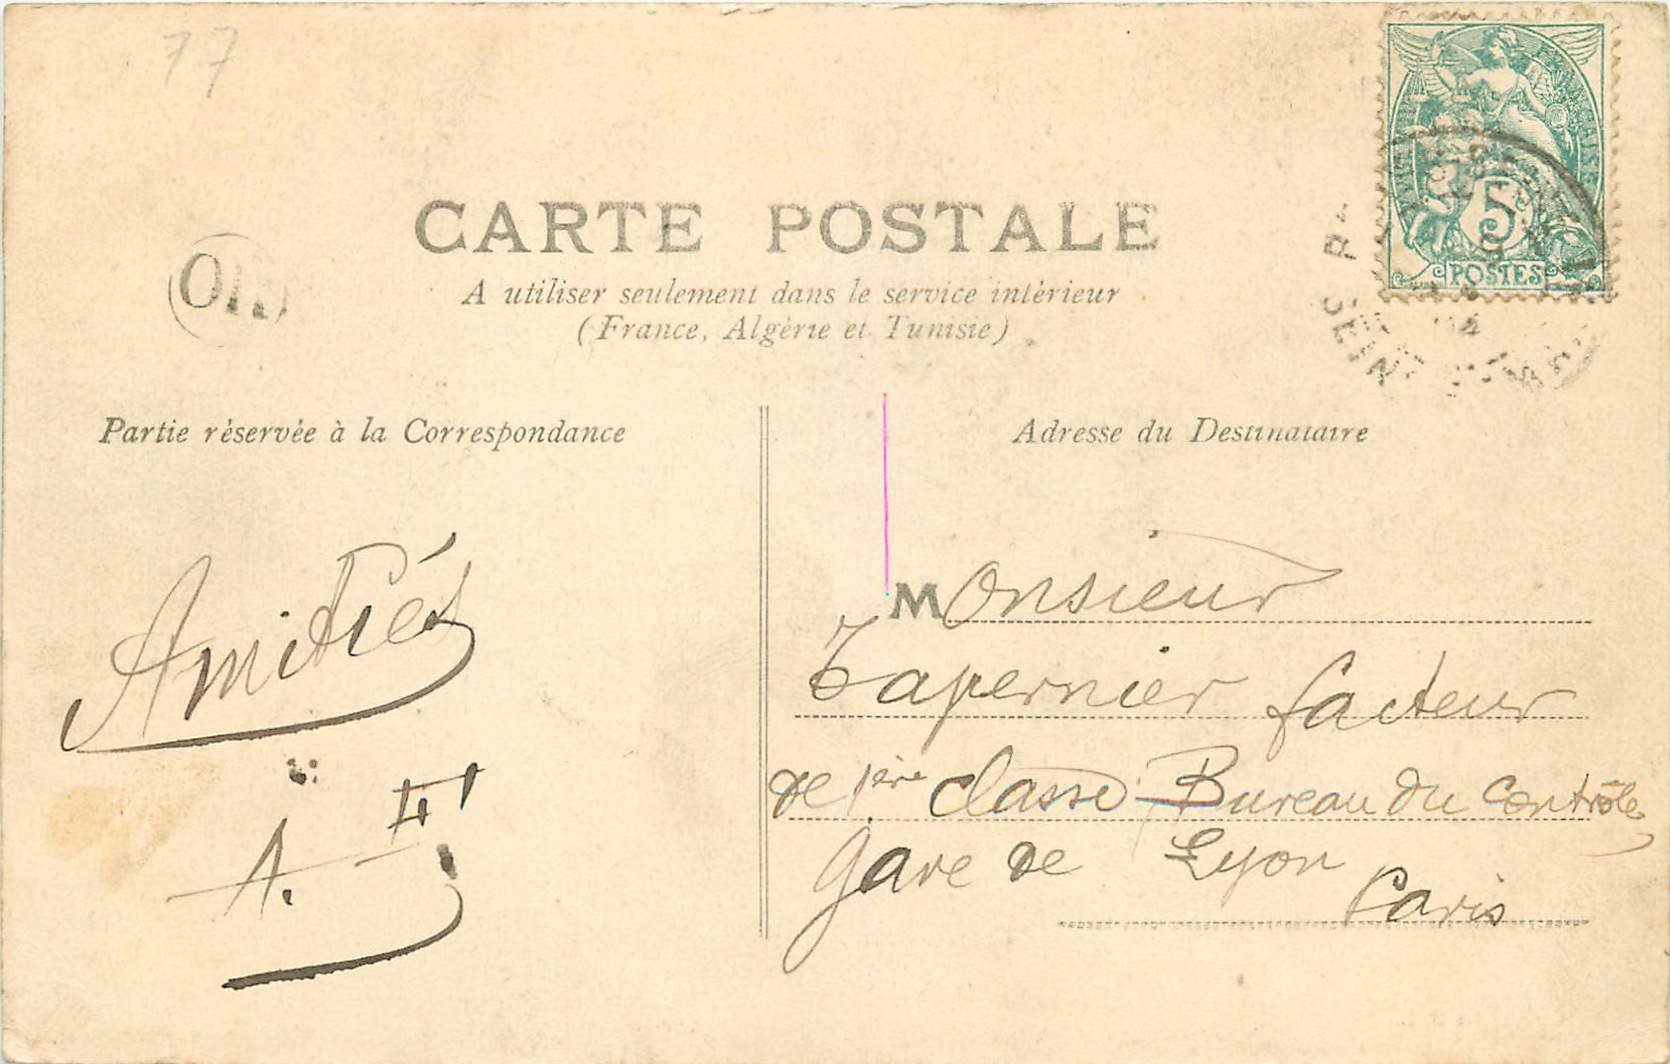 77
CARTE POSTALE
A utiliser seulement dans le service intérieur
(France, Algérie et Tunisie)
5
POSTES
Partie réservée à la Correspondance
Adresse du Destinataire
Amitiés
Monsieur
Tapernier facteur
de 1ère classe Bureau du Contrôle
Gare de Lyon
Paris